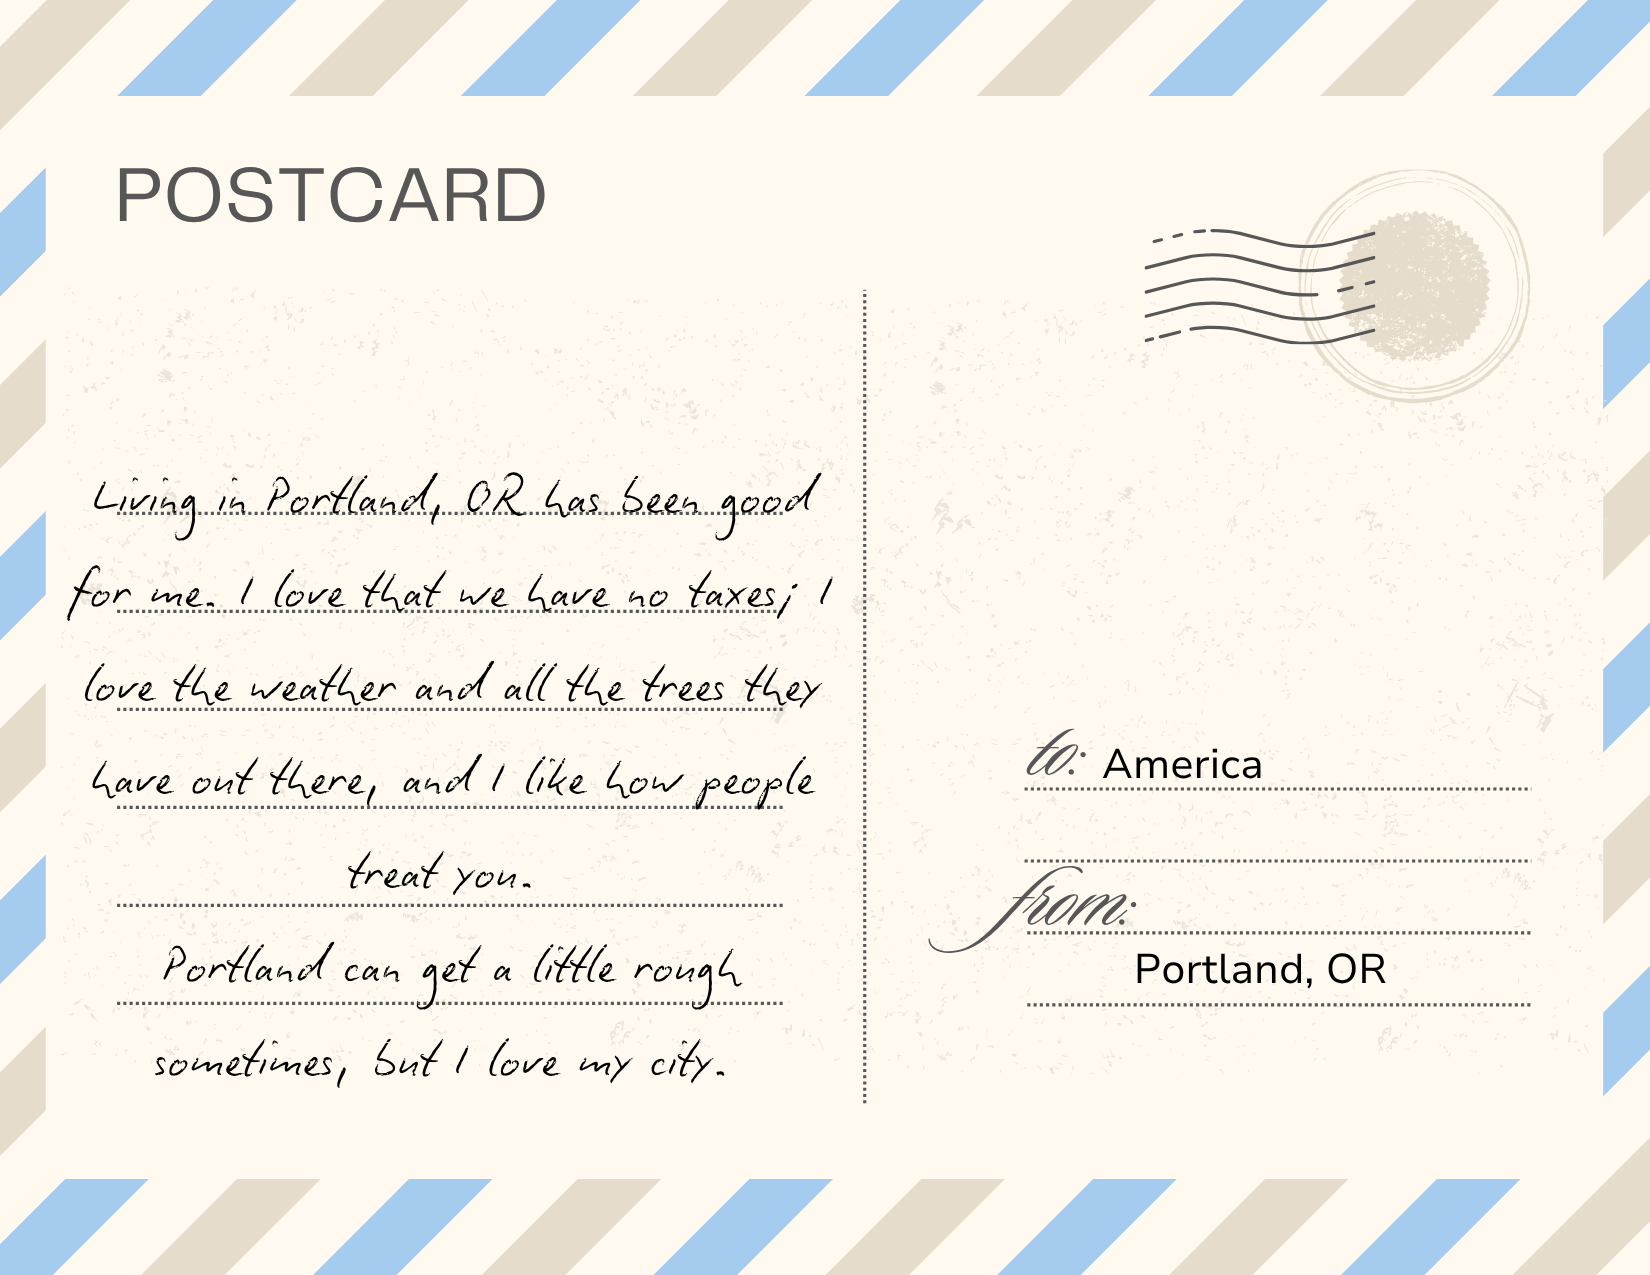 POSTCARD
Living in Portland, OR has been good
for me. I love that we have no taxes; I
love the weather and all the trees they
have out there, and I like how people
treat you.
Portland can get a little rough
sometimes, but I love my city.
to: America
from:
Portland, OR